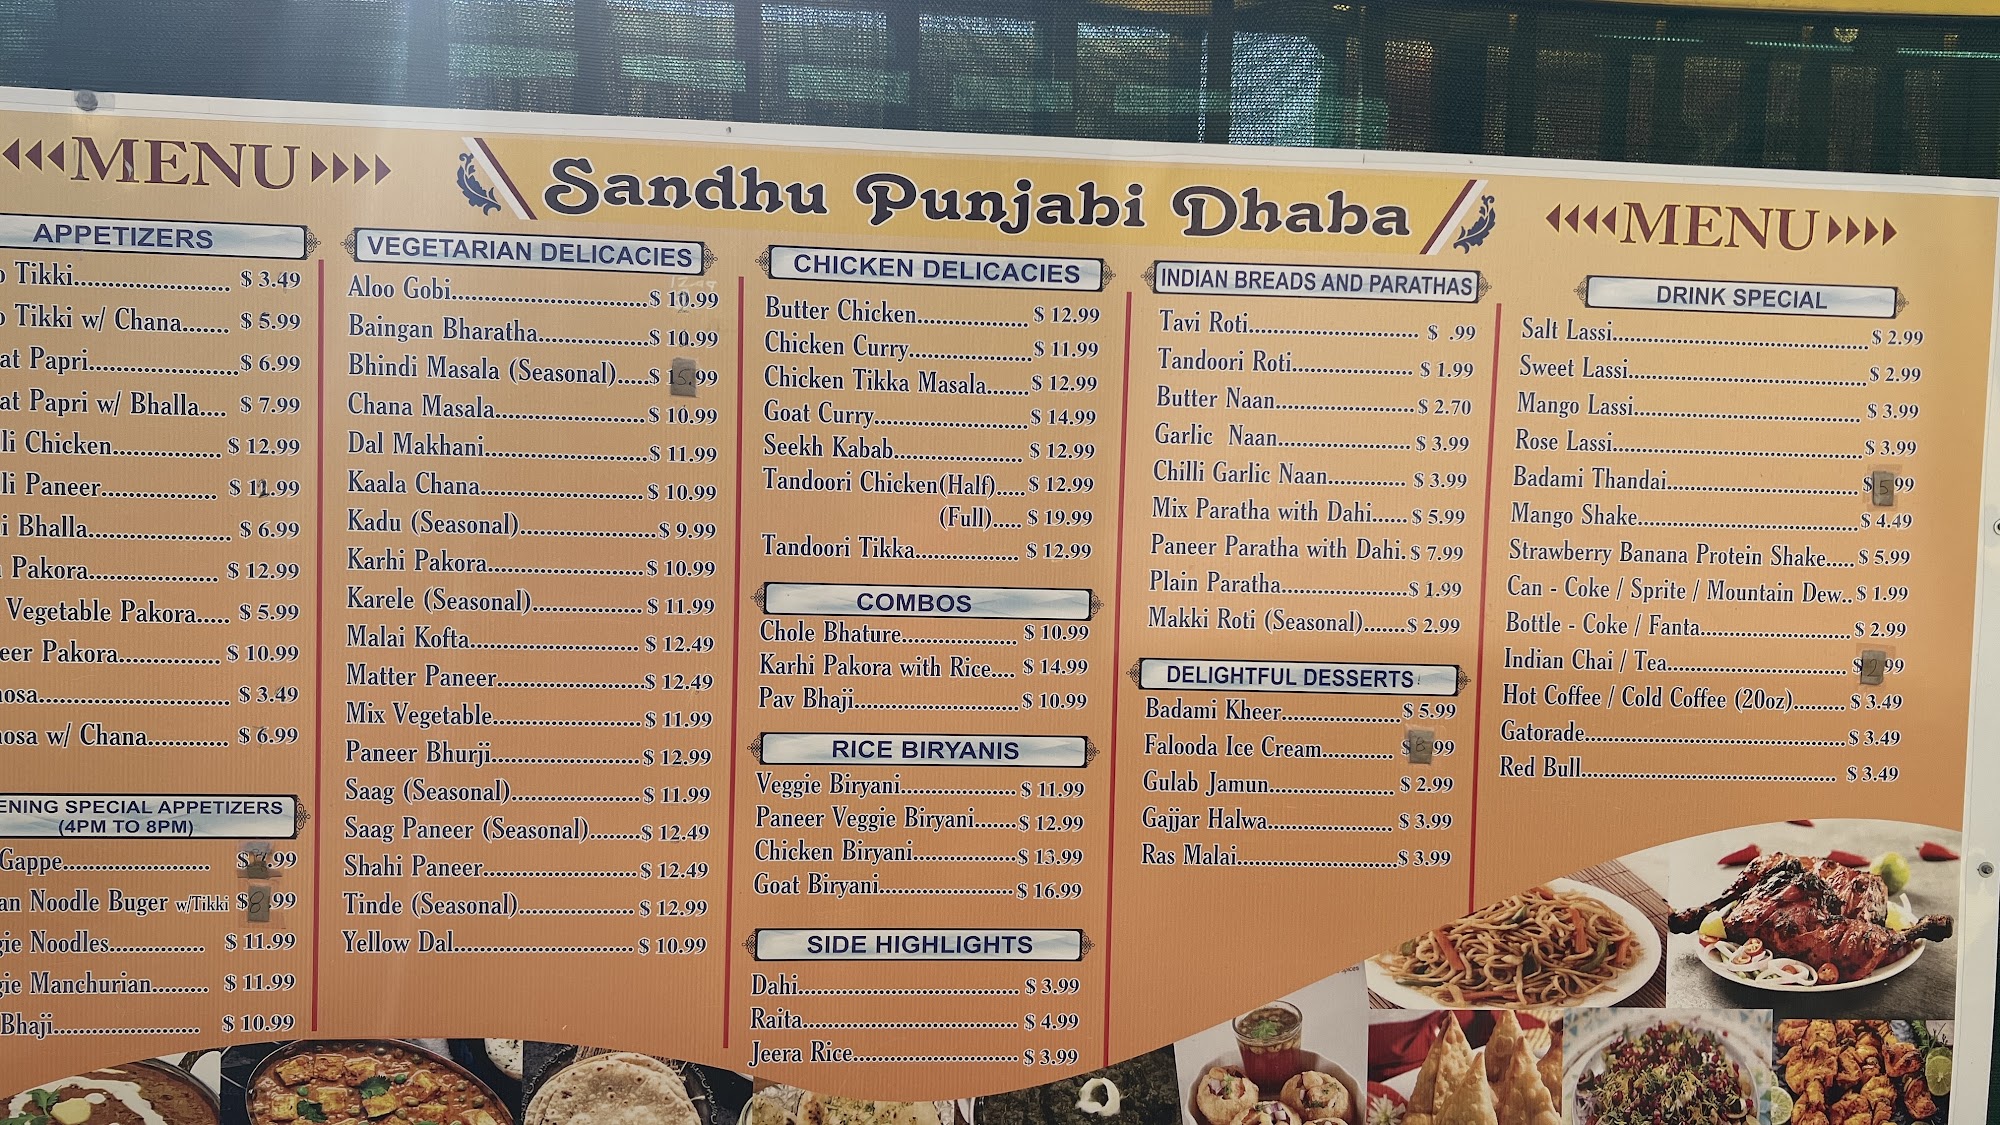 MENU
Sandhu Punjabi Dhaba
MENU
APPETIZERS
Tikki $ 3.49
Tikki w/ Chana $ 5.99
Papri $ 6.99
Papri w/ Bhalla $ 7.99
Chicken $ 12.99
Paneer $ 11.99
Bhalla $ 6.99
Pakora $ 12.99
Vegetable Pakora $ 5.99
Pakora $ 10.99
$ 3.49
w/ Chana $ 6.99
SPECIAL APPETIZERS
(4PM TO 8PM)
Gappe $ .99
Noodle Buger w/Tikki $ 8.99
Noodles $ 11.99
Manchurian $ 11.99
Bhaji $ 10.99
VEGETARIAN DELICACIES
Aloo Gobi $ 10.99
Baingan Bharatha $ 10.99
Bhindi Masala (Seasonal) $ 15.99
Chana Masala $ 10.99
Dal Makhani $ 11.99
Kaala Chana $ 10.99
Kadu (Seasonal) $ 9.99
Karhi Pakora $ 10.99
Karele (Seasonal) $ 11.99
Malai Kofta $ 12.49
Matter Paneer $ 12.49
Mix Vegetable $ 11.99
Paneer Bhurji $ 12.99
Saag (Seasonal) $ 11.99
Saag Paneer (Seasonal) $ 12.49
Shahi Paneer $ 12.49
Tinde (Seasonal) $ 12.99
Yellow Dal $ 10.99
CHICKEN DELICACIES
Butter Chicken $ 12.99
Chicken Curry $ 11.99
Chicken Tikka Masala $ 12.99
Goat Curry $ 14.99
Seekh Kabab $ 12.99
Tandoori Chicken(Half) $ 12.99
(Full) $ 19.99
Tandoori Tikka $ 12.99
COMBOS
Chole Bhature $ 10.99
Karhi Pakora with Rice $ 14.99
Pav Bhaji $ 10.99
RICE BIRYANIS
Veggie Biryani $ 11.99
Paneer Veggie Biryani $ 12.99
Chicken Biryani $ 13.99
Goat Biryani $ 16.99
SIDE HIGHLIGHTS
Dahi $ 3.99
Raita $ 4.99
Jeera Rice $ 3.99
INDIAN BREADS AND PARATHAS
Tavi Roti $ .99
Tandoori Roti $ 1.99
Butter Naan $ 2.70
Garlic Naan $ 3.99
Chilli Garlic Naan $ 3.99
Mix Paratha with Dahi $ 5.99
Paneer Paratha with Dahi $ 7.99
Plain Paratha $ 1.99
Makki Roti (Seasonal) $ 2.99
DELIGHTFUL DESSERTS
Badami Kheer $ 5.99
Falooda Ice Cream $ 8.99
Gulab Jamun $ 2.99
Gajjar Halwa $ 3.99
Ras Malai $ 3.99
DRINK SPECIAL
Salt Lassi $ 2.99
Sweet Lassi $ 2.99
Mango Lassi $ 3.99
Rose Lassi $ 3.99
Badami Thandai $ 5.99
Mango Shake $ 4.49
Strawberry Banana Protein Shake $ 5.99
Can - Coke / Sprite / Mountain Dew $ 1.99
Bottle - Coke / Fanta $ 2.99
Indian Chai / Tea $ 2.99
Hot Coffee / Cold Coffee (20oz) $ 3.49
Gatorade $ 3.49
Red Bull $ 3.49